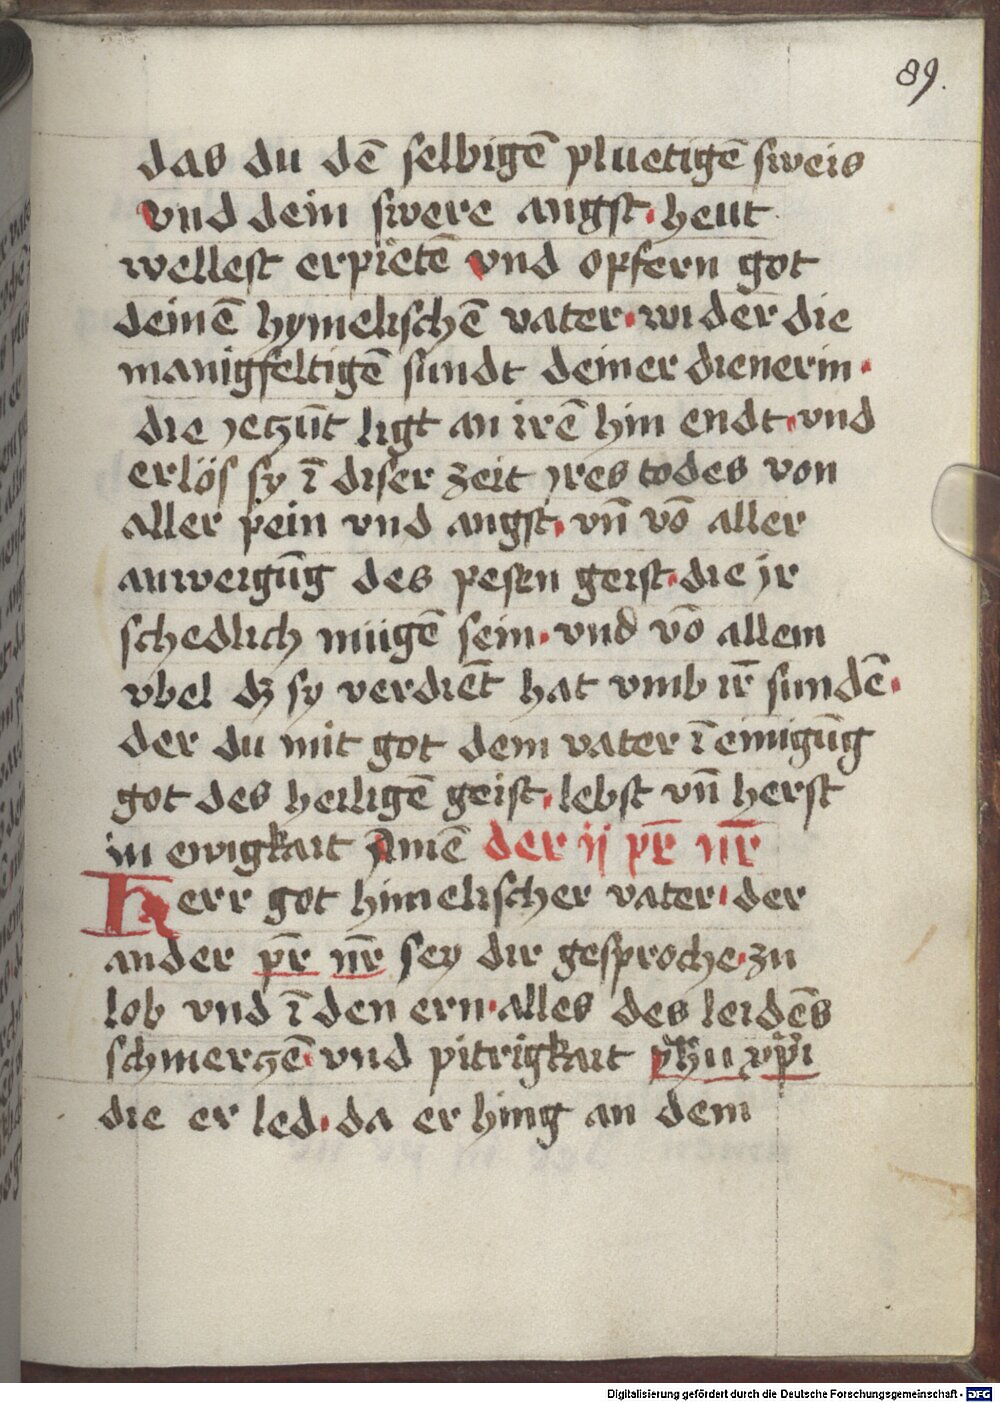 89.
das du dē selbigē pluetigē sweis
vnd dein swere angst · heut
wellest erpietē vnd opfern got
deinē hymelischē vater · wider die
manigfeltigē sundt deiner dienerin ·
die yeczūt ligt an irē hin endt · vnd
erlös sy ī diser zeit yres todes von
aller pein vnd angst · vn̄ vō aller
anweigūg des pesen geist · die yr
schedlich mügē sein · vnd vō allem
vbel dz sy verdiēt hat vmb ir̄ sundē ·
der du mit got dem vater ī einigūg
got des heiligē geist · lebst vn̄ herst
in ewigkait Amē der ij pr̄ nr̄
Herr got himelischer vater · der
ander pr̄ nr̄ sey dir gesproche · zu
lob vnd ī den ern · alles des leidēs
schmerczē · vnd pitrigkait yhū xp̄i
die er led · da er hing an dem
Digitalisierung gefördert durch die Deutsche Forschungsgemeinschaft - DFG